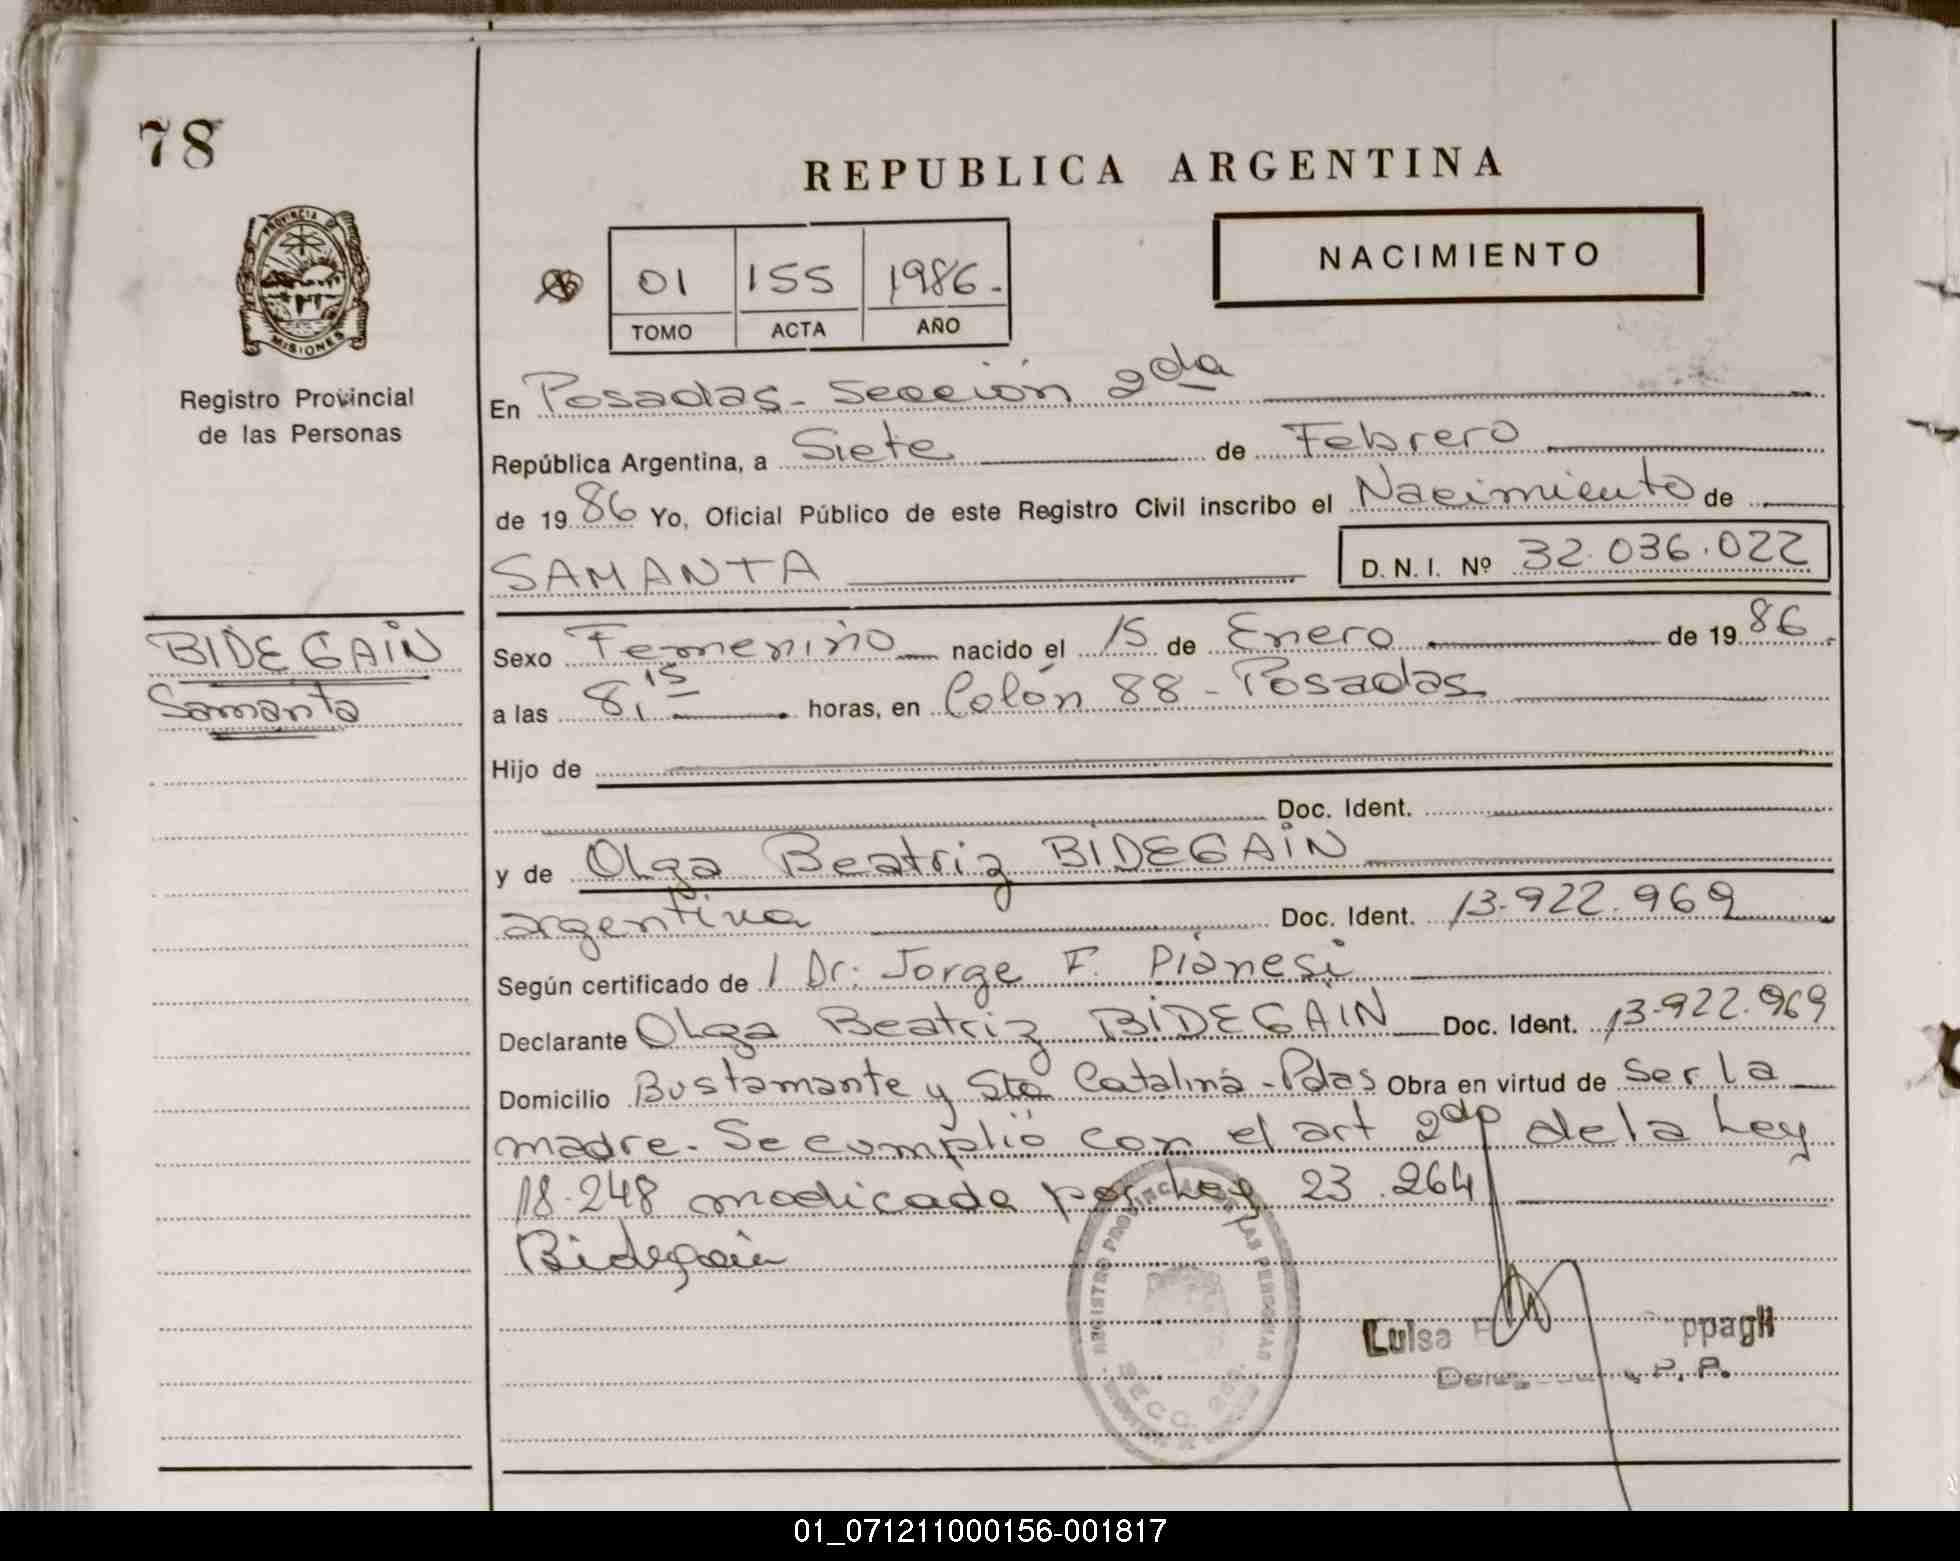 78
REPUBLICA ARGENTINA
NACIMIENTO
01 155 1986.
TOMO ACTA AÑO
PROVINCIA DE
MISIONES
Registro Provincial
de las Personas
BIDEGAIN
Samanta
En Posadas - Sección 2da
República Argentina, a Siete de Febrero
de 1986 Yo, Oficial Público de este Registro Civil inscribo el Nacimiento de
SAMANTA D. N. I. Nº 32.036.022
Sexo Femenino nacido el 15 de Enero de 1986.
a las 8,15 horas, en Colón 88 - Posadas
Hijo de
Doc. Ident.
y de Olga Beatriz BIDEGAIN
argentina Doc. Ident. 13.922.969
Según certificado de 1 Dr. Jorge F. Pianesi
Declarante Olga Beatriz BIDEGAIN Doc. Ident. 13.922.969
Domicilio Bustamante y Sta Catalina - Pdas Obra en virtud de ser la
madre. Se cumplió con el art 2do de la Ley
18.248 modicada por Ley 23.264
Bidegain
REGISTRO PROVINCIAL DE LAS PERSONAS
SECC. 2da.
Luisa ppagli
P. P.
01_071211000156-001817